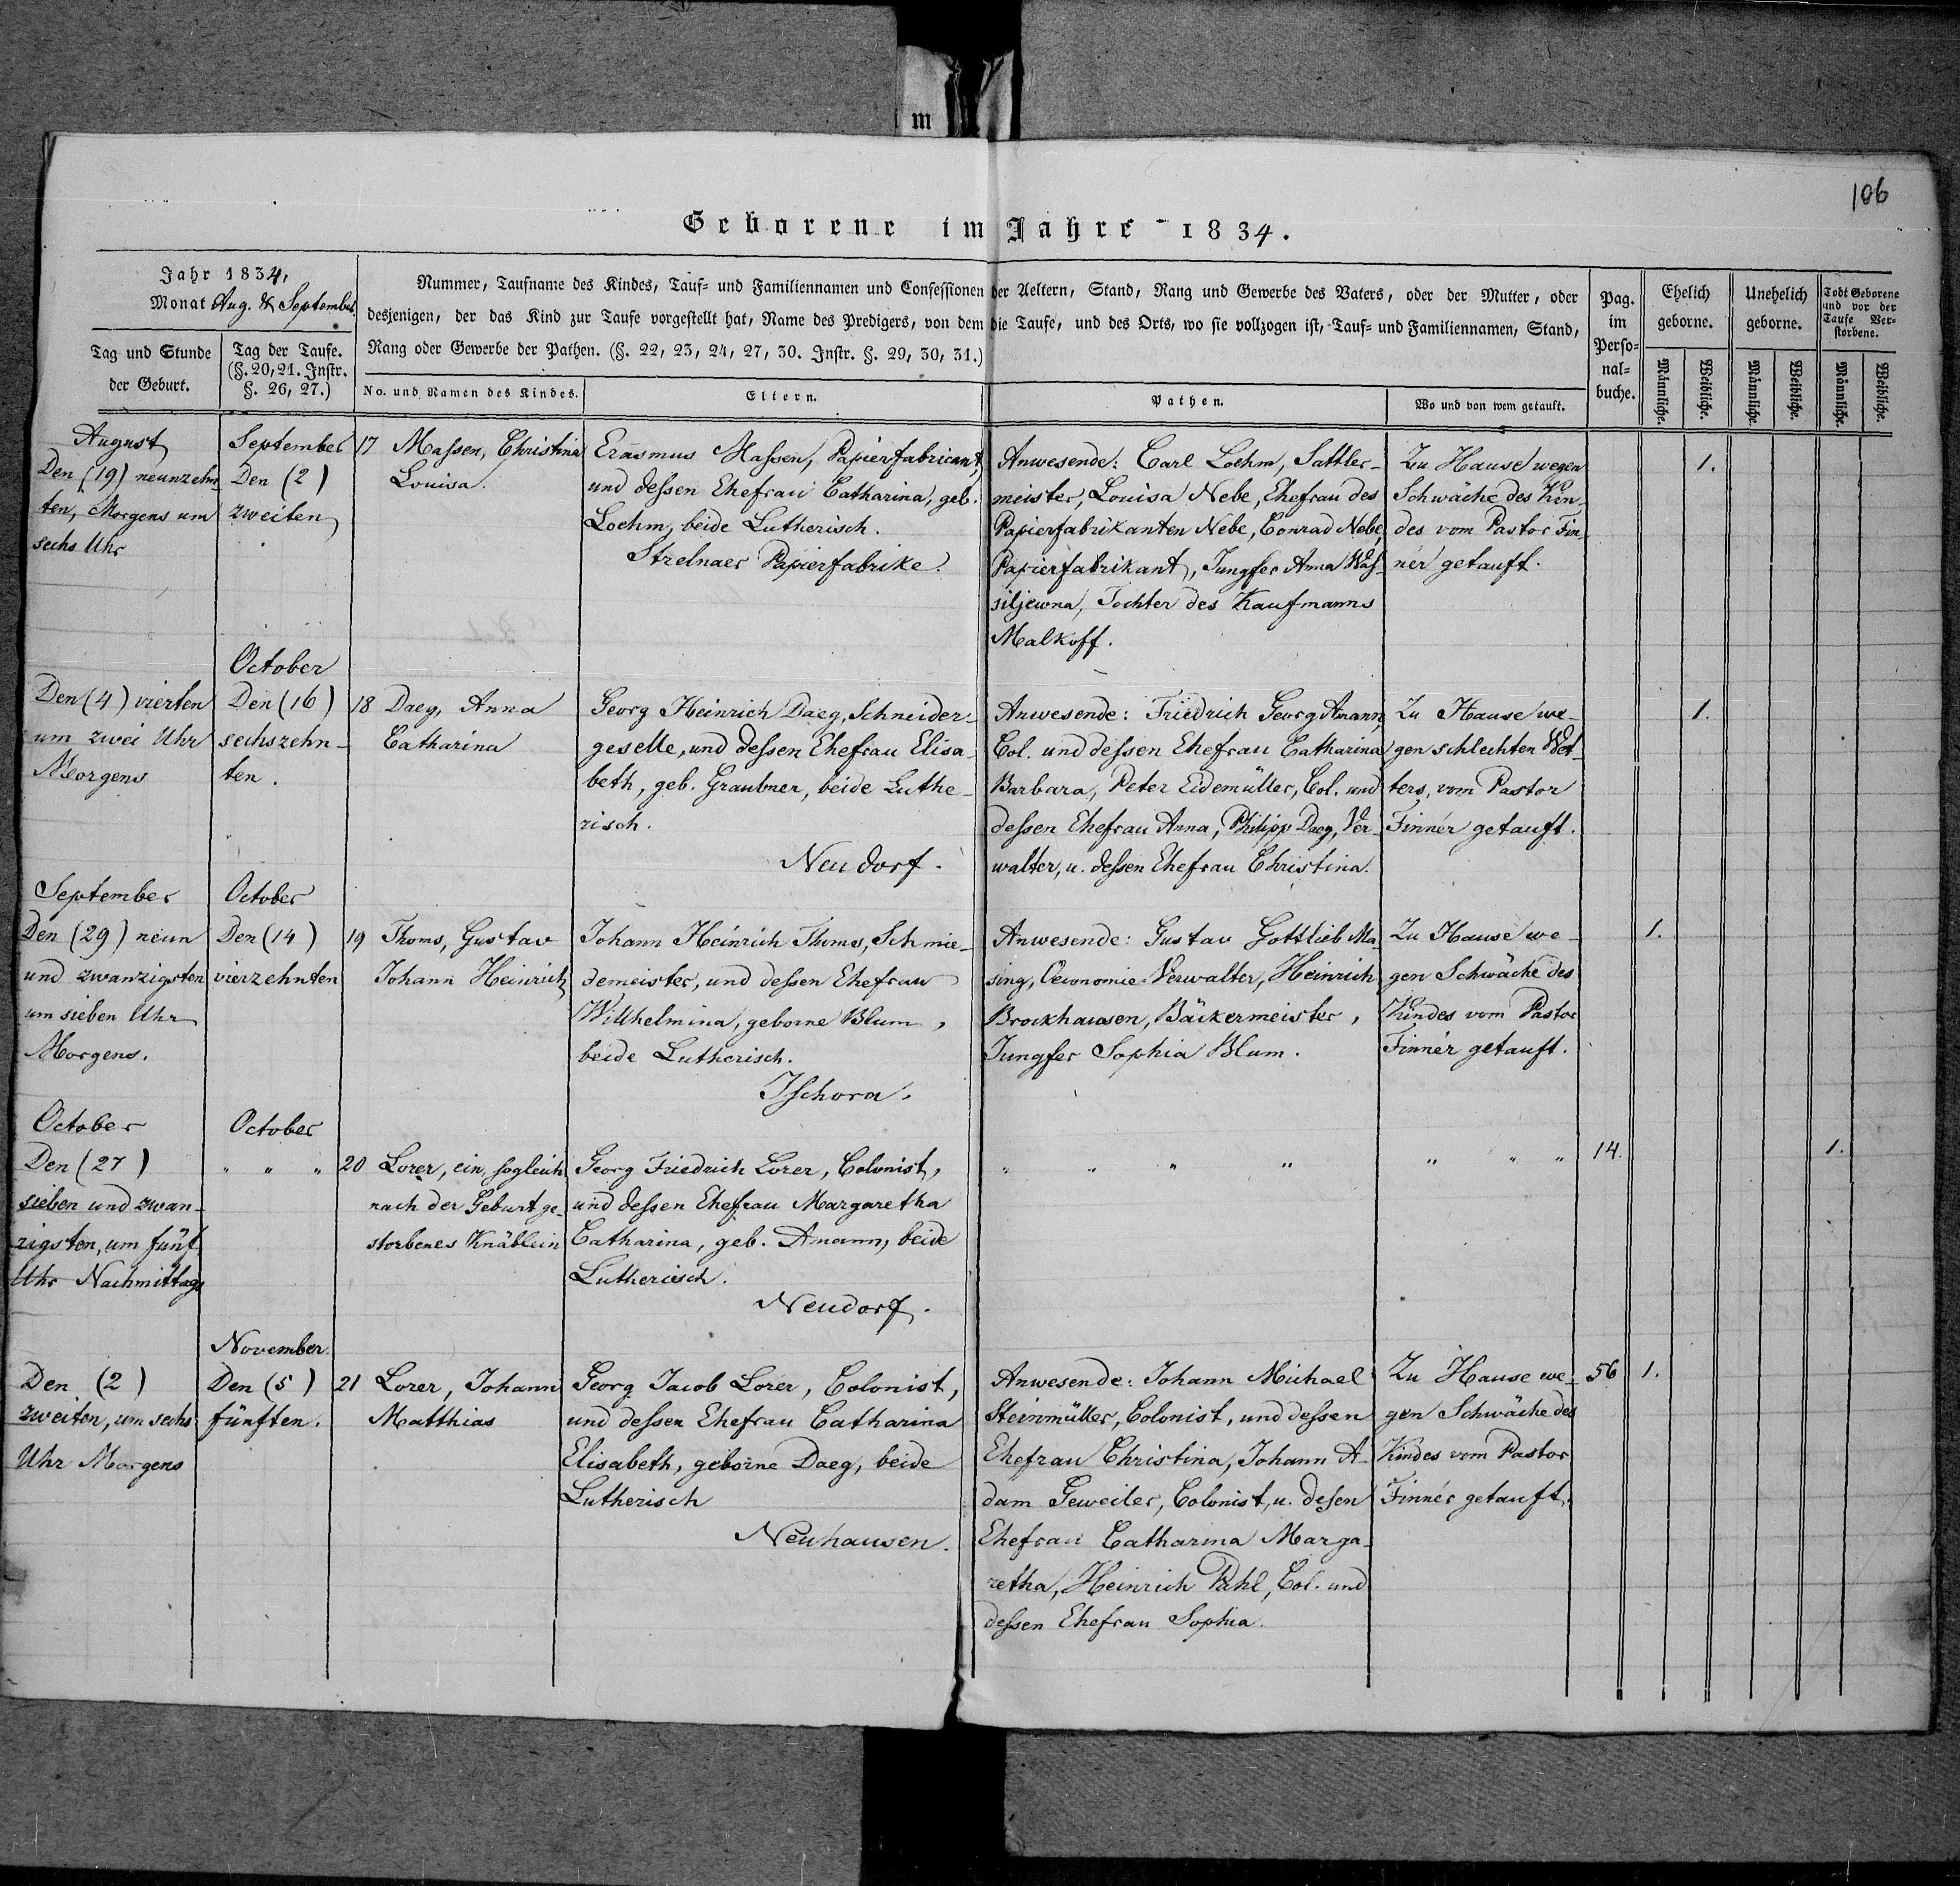 m
106
Geborene im Jahre 1834.
Jahr 1834,
Monat Aug. & September.
Tag und Stunde
der Geburt.
Tag der Taufe.
(§. 20, 21. Instr.
§. 26, 27.)
Nummer, Taufname des Kindes, Tauf- und Familiennamen und Confessionen der Aeltern, Stand, Rang und Gewerbe des Vaters, oder der Mutter, oder
desjenigen, der das Kind zur Taufe vorgestellt hat, Name des Predigers, von dem die Taufe, und des Orts, wo sie vollzogen ist, Tauf- und Familiennamen, Stand,
Rang oder Gewerbe der Pathen. (§. 22, 23, 24, 27, 30. Instr. §. 29, 30, 31.)
No. und Namen des Kindes.
Eltern.
Pathen.
Wo und von wem getauft.
Pag.
im
Perso-
nal-
buche.
Ehelich
geborne.
Unehelich
geborne.
Todt Geborene
und vor der
Taufe Ver-
storbene.
Männliche.
Weibliche.
Männliche.
Weibliche.
Männliche.
Weibliche.
August
Den (19) neunzehn-
ten, Morgens um
sechs Uhr
September
Den (2)
zweiten
17 Maßen, Christina
Louisa.
Erasmus Maßen, Papierfabricant,
und deßen Ehefrau Catharina, geb.
Loehm, beide Lutherisch.
Strelnaer Papierfabrike.
Anwesende: Carl Loehm, Sattler-
meister, Louisa Nebe, Ehefrau des
Papierfabrikanten Nebe, Conrad Nebe,
Papierfabrikant, Jungfer Anna Waß-
siljewna, Tochter des Kaufmanns
Malkoff.
Zu Hause wegen
Schwäche des Kin-
des vom Pastor Fin-
nér getauft.
1.
Den (4) vierten
um zwei Uhr
Morgens
October
Den (16)
sechszehn-
ten.
18 Daeg, Anna
Catharina
Georg Heinrich Daeg, Schneider-
geselle, und deßen Ehefrau Elisa-
beth, geb. Graubner, beide Luthe-
risch.
Neudorf.
Anwesende: Friedrich Georg Amann,
Col. und deßen Ehefrau Catharina
Barbara, Peter Eidemüller, Col. und
deßen Ehefrau Anna, Philipp Daeg, Ver-
walter, u. deßen Ehefrau Christina.
Zu Hause we-
gen schlechten Wet-
ters, vom Pastor
Finnér getauft.
1.
September
Den (29) neun
und zwanzigsten
um sieben Uhr
Morgens.
October
Den (14)
vierzehnten
19 Thoms, Gustav
Johann Heinrich
Johann Heinrich Thoms, Schmie-
demeister, und deßen Ehefrau
Willhelmina, geborne Blum,
beide Lutherisch.
Ischora.
Anwesende: Gustav Gottlieb Ma-
sing, Oeconomie-Verwalter, Heinrich
Brockhausen, Bäckermeister,
Jungfer Sophia Blum.
Zu Hause we-
gen Schwäche des
Kindes vom Pastor
Finnér getauft.
1.
October
Den (27)
sieben und zwan-
zigsten, um fünf
Uhr Nachmittags
October
" " "
20 Lorer, ein, sogleich
nach der Geburt ge-
storbenes Knäblein
Georg Friedrich Lorer, Colonist,
und deßen Ehefrau Margaretha
Catharina, geb. Amann, beide
Lutherisch.
Neudorf.
" " " "
" " "
14.
1.
Den (2)
zweiten, um sechs
Uhr Morgens
November.
Den (5)
fünften.
21 Lorer, Johann
Matthias
Georg Jacob Lorer, Colonist,
und deßen Ehefrau Catharina
Elisabeth, geborne Daeg, beide
Lutherisch
Neuhausen.
Anwesende: Johann Michael
Steinmüller, Colonist, und deßen
Ehefrau Christina, Johann A-
dam Geweiler, Colonist, u. deßen
Ehefrau Catharina Marga-
retha, Heinrich Pahl, Col. und
deßen Ehefrau Sophia.
Zu Hause we-
gen Schwäche des
Kindes vom Pastor
Finnér getauft.
56
1.